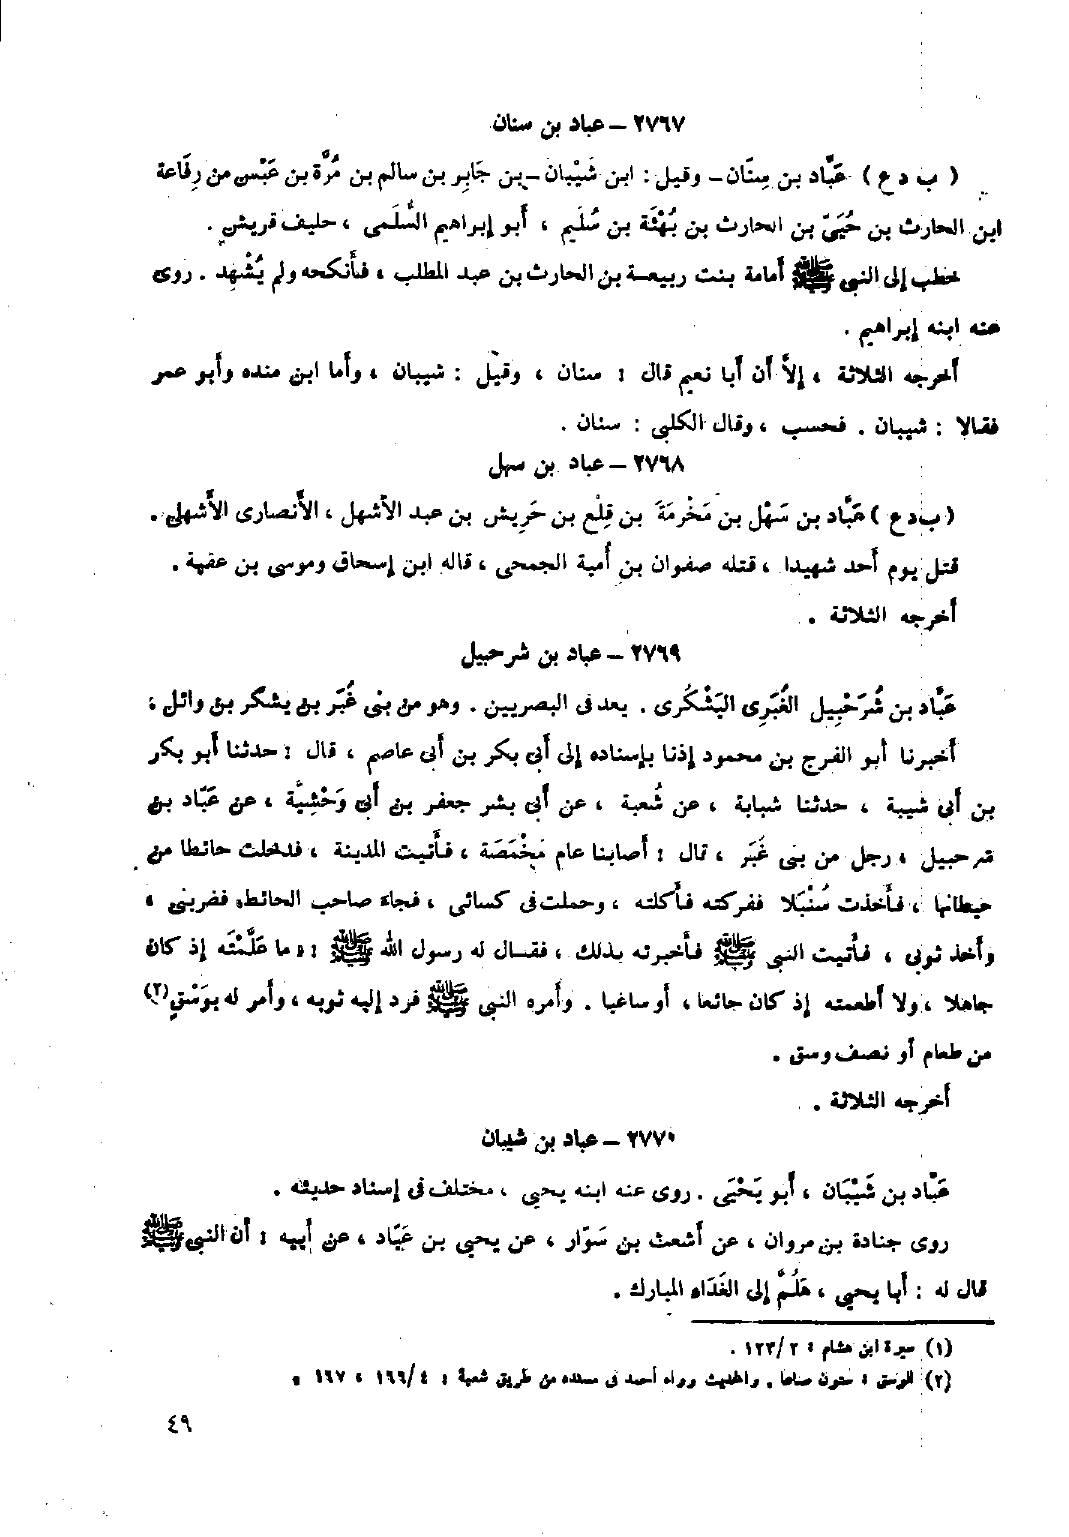 ٢٧٦٧ – عباد بن سنان
( ب د ع ) عَبَّاد بن سِنَان – وقيل : ابن شَيْبان – بن جَابِر بن سالم بن مُرَّة بن عَبْس من رِفَاعة
ابن الحارث بن حُيَىّ بن الحارث بن بُهْثَة بن سُلَيم ، أَبو إبراهيم السُّلَمى ، حليف قريش .
خطب إلى النبى ﷺ أُمامة بنت ربيعة بن الحارث بن عبد المطلب ، فأَنكحه ولم يُشْهِد . روى
عنه ابنه إبراهيم .
أَخرجه الثلاثة ، إلاَّ أَن أَبا نعيم قال : سنان ، وقيل : شيبان ، وأَما ابن منده وأَبو عمر
فقالا : شيبان . فحسب ، وقال الكلبى : سنان .
٢٧٦٨ – عباد بن سهل
( ب د ع ) عَبَّاد بن سَهْل بن مَخْرمَة بن قِلْع بن حَرِيش بن عبد الأَشهل ، الأَنصارى الأَشهلى .
قتل يوم أُحد شهيدا ، قتله صفوان بن أُمية الجمحى ، قاله ابن إسحاق وموسى بن عقبة .
أَخرجه الثلاثة .
٢٧٦٩ – عباد بن شرحبيل
عَبَّاد بن شُرَحْبِيل الغُبَرِى اليَشْكُرى . يعد فى البصريين . وهو من بنى غُبَر بن يشكر بن وائل ؛
أَخبرنا أَبو الفرج بن محمود إذنا بإسناده إلى أَبى بكر بن أَبى عاصم ، قال : حدثنا أَبو بكر
بن أَبى شيبة ، حدثنا شبابة ، عن شُعبة ، عن أَبى بشر جعفر بن أَبى وَحْشِيَّة ، عن عَبّاد بن
شرحبيل ، رجل من بنى غُبَر ، قال : أَصابنا عام مَخْمَصَة ، فأَتيت المدينة ، فدخلت حائطا من
حيطانها ، فأَخذت سُنْبَلا ففركته فأَكلته ، وحملت فى كسائى ، فجاءَ صاحب الحائط فضربنى ،
وأَخذ ثوبى ، فأَتيت النبى ﷺ فأَخبرته بذلك ، فقال له رسول الله ﷺ : « ما عَلَّمْتَه إذ كان
جاهلا ، ولا أَطعمته إذ كان جائعا ، أَو ساغبا . وأَمره النبى ﷺ فرد إليه ثوبه ، وأَمر له بوَسْقٍ (٢)
من طعام أَو نصف وسق .
أَخرجه الثلاثة .
٢٧٧٠ – عباد بن شيبان
عَبَّاد بن شَيْبَان ، أَبو يَحْيَى . روى عنه ابنه يحيى ، مختلف فى إسناد حديثه .
روى جنادة بن مروان ، عن أَشعث بن سَوّار ، عن يحيى بن عَبّاد ، عن أَبيه : أَن النبى ﷺ
قال له : أَبا يحيى ، هَلُمَّ إلى الغَدَاءِ المبارك .
(١) سيرة ابن هشام : ٢ / ١٢٣ .
(٢) الوسق : ستون صاعا . والحديث رواه أحمد فى مسنده من طريق شعبة : ٤ / ١٦٦ ، ١٦٧ .
٤٩